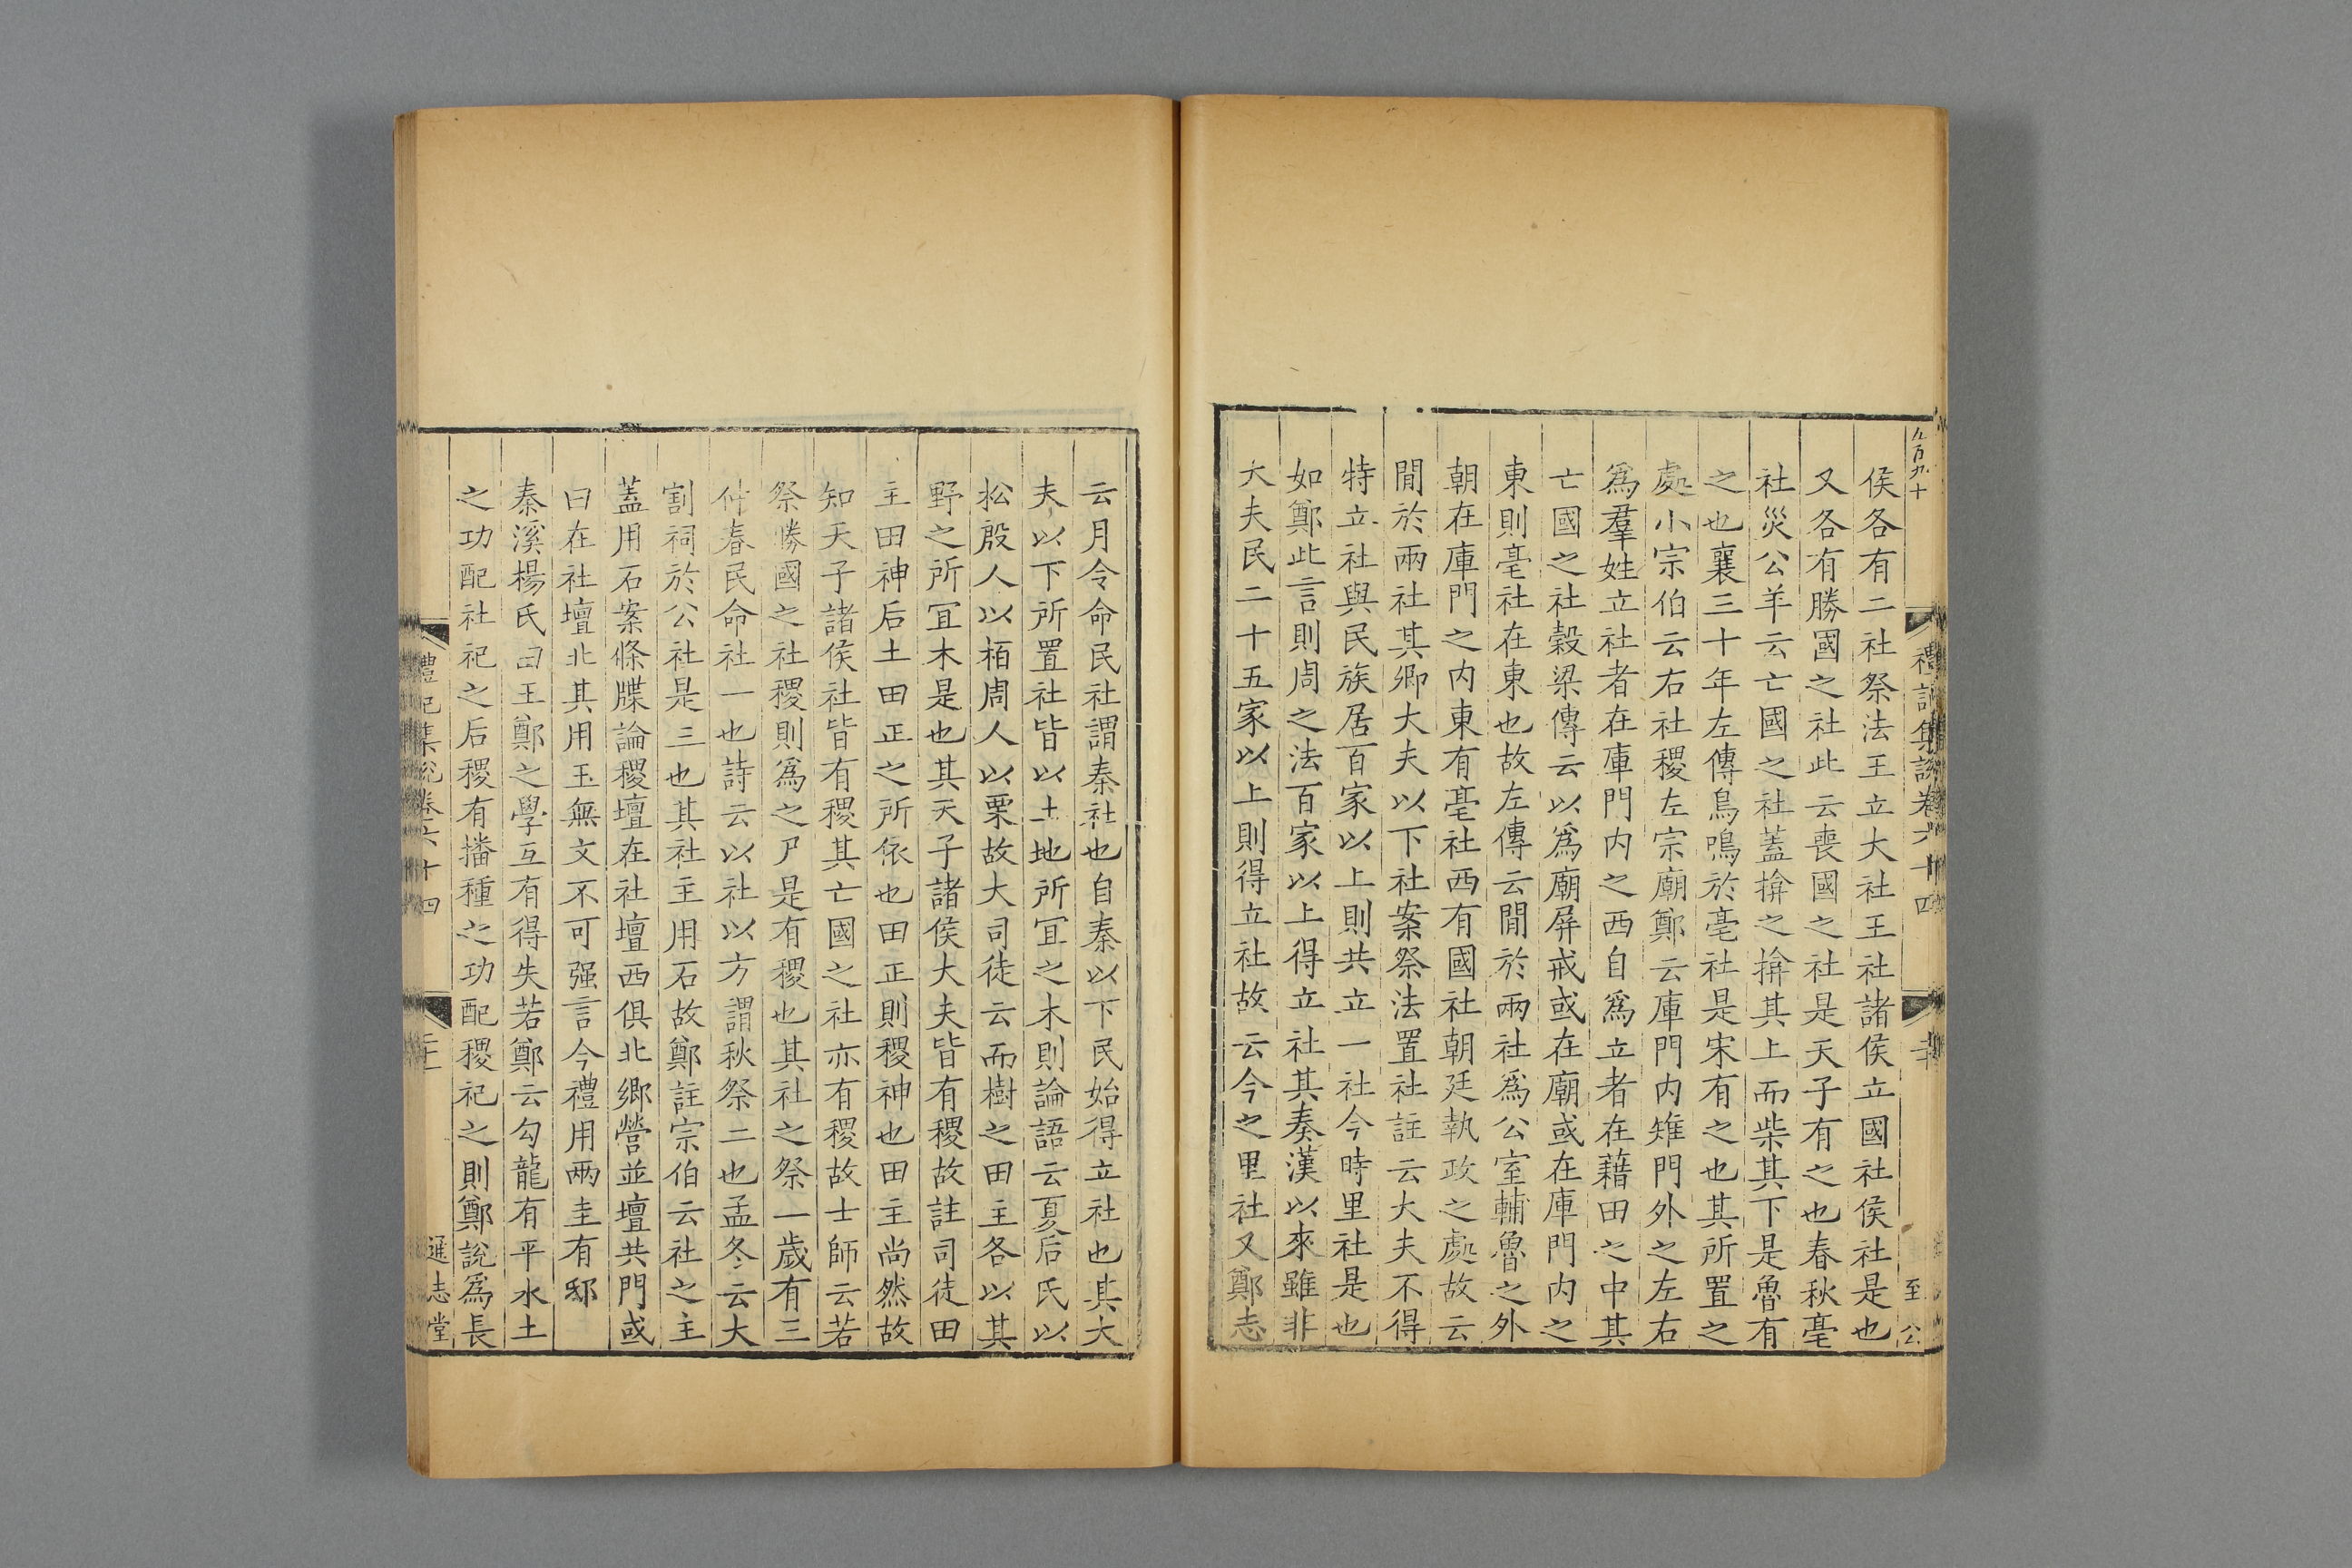 侯各有二社祭法王立大社王社諸侯立國社侯社是也
又各有勝國之社此云喪國之社是天子有之也春秋亳
社災公羊云亡國之社蓋揜之揜其上而柴其下是魯有
之也襄三十年左傳鳥鳴於亳社是宋有之也其所置之
處小宗伯云右社稷左宗廟鄭云庫門内雉門外之左右
爲羣姓立社者在庫門内之西自爲立者在藉田之中其
亡國之社穀梁傳云以爲廟屏戒或在廟或在庫門内之
東則亳社在東也故左傳云間於兩社爲公室輔魯之外
朝在庫門之内東有亳社西有國社朝廷執政之處故云
間於兩社其卿大夫以下社案祭法置社註云大夫不得
特立社與民族居百家以上則共立一社今時里社是也
如鄭此言則周之法百家以上得立社其秦漢以來雖非
大夫民二十五家以上則得立社故云今之里社又鄭志
云月令命民社謂秦社也自秦以下民始得立社也其大
夫以下所置社皆以土地所宜之木則論語云夏后氏以
松殷人以栢周人以栗故大司徒云而樹之田主各以其
野之所宜木是也其天子諸侯大夫皆有稷故註司徒田
主田神后土田正之所依也田正則稷神也田主尚然故
知天子諸侯社皆有稷其亡國之社亦有稷故士師云若
祭勝國之社稷則爲之尸是有稷也其社之祭一歲有三
仲春民命社一也詩云以社以方謂秋祭二也孟冬云大
割祠於公社是三也其社主用石故鄭註宗伯云社之主
蓋用石案條牒論稷壇在社壇西俱北鄉營並壇共門或
曰在社壇北其用玉無文不可强言今禮用兩圭有邸
秦溪楊氏曰王鄭之學互有得失若鄭云勾龍有平水土
之功配社祀之后稷有播種之功配稷祀之則鄭說爲長
禮記集說卷六十四
通志堂